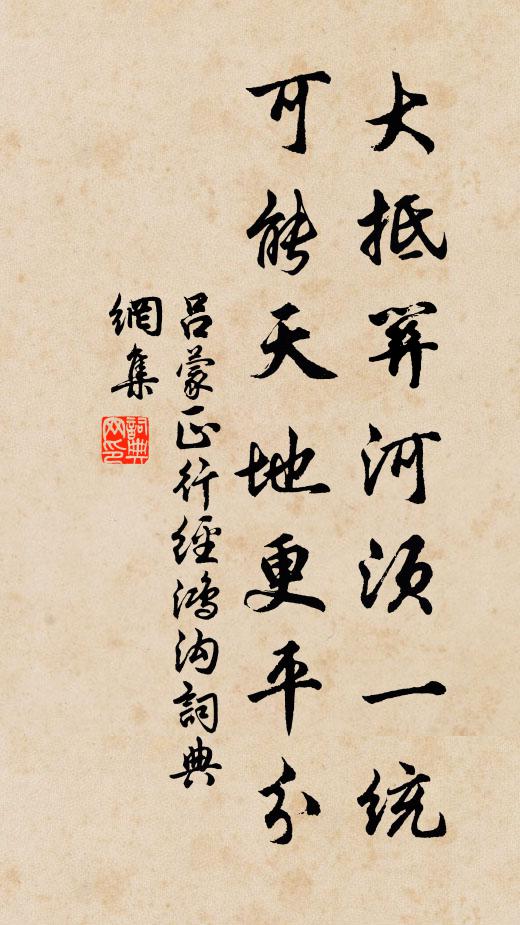 大抵關河須一統
可能天地更平分
吕蒙正行經鴻沟詞典
網集
詞典
网印